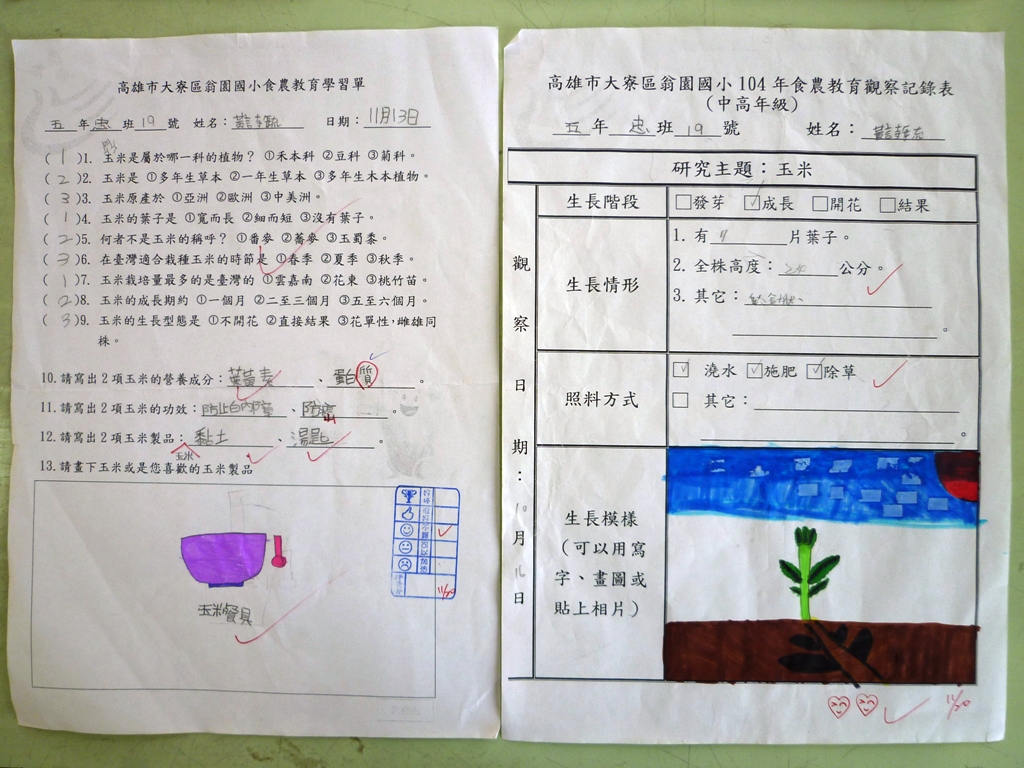 高雄市大寮區翁園國小食農教育學習單
五 年 忠 班 19 號 姓名： 日期：11月13日
( 1 )1. 玉米是屬於哪一科的植物？ ①禾本科 ②豆科 ③菊科。
( 2 )2. 玉米是 ①多年生草本 ②一年生草本 ③多年生木本植物。
( 3 )3. 玉米原產於 ①亞洲 ②歐洲 ③中美洲。
( 1 )4. 玉米的葉子是 ①寬而長 ②細而短 ③沒有葉子。
( 2 )5. 何者不是玉米的稱呼？ ①番麥 ②蕎麥 ③玉蜀黍。
( 3 )6. 在臺灣適合栽種玉米的時節是 ①春季 ②夏季 ③秋季。
( 1 )7. 玉米栽培量最多的是臺灣的 ①雲嘉南 ②花東 ③桃竹苗。
( 2 )8. 玉米的成長期約 ①一個月 ②二至三個月 ③五至六個月。
( 3 )9. 玉米的生長型態是 ①不開花 ②直接結果 ③花單性，雌雄同
株。
10.請寫出2項玉米的營養成分：葉黃素、蛋白質。
11.請寫出2項玉米的功效：防止白內障、防癌。
12.請寫出2項玉米製品：黏土、湯匙。
玉米
13.請畫下玉米或是您喜歡的玉米製品
玉米餐具
11/20
高雄市大寮區翁園國小104年食農教育觀察記錄表
（中高年級）
五 年 忠 班 19 號 姓名：
研究主題：玉米
觀察日期：10月16日
生長階段
□發芽 ☑成長 □開花 □結果
生長情形
1. 有 片葉子。
2. 全株高度： 公分。
3. 其它：
。
照料方式
☑ 澆水 ☑施肥 ☑除草
□ 其它：
。
生長模樣
（可以用寫
字、畫圖或
貼上相片）
11/20